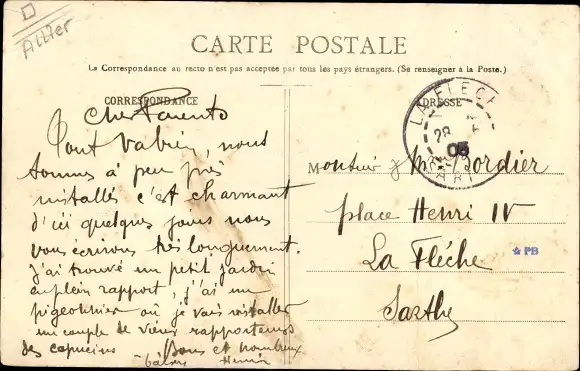 Allier
CARTE POSTALE
La Correspondance au recto n'est pas acceptée par tous les pays étrangers. (Se renseigner à la Poste.)
CORRESPONDANCE
Chers Parents
Tout va bien, nous
sommes à peu près
installés c'est charmant
d'ici quelques jours nous
vous écrirons très longuement.
j'ai trouvé un petit jardin
en plein rapport, j'ai un
pigeonnier où je vais installer
un couple de
des capucins Bons et nombreux
baisers Henri
ADRESSE
LA FLECHE
28
05
Monsieur & Mme Bordier
place Henri IV
La Flèche
Sarthe
PB